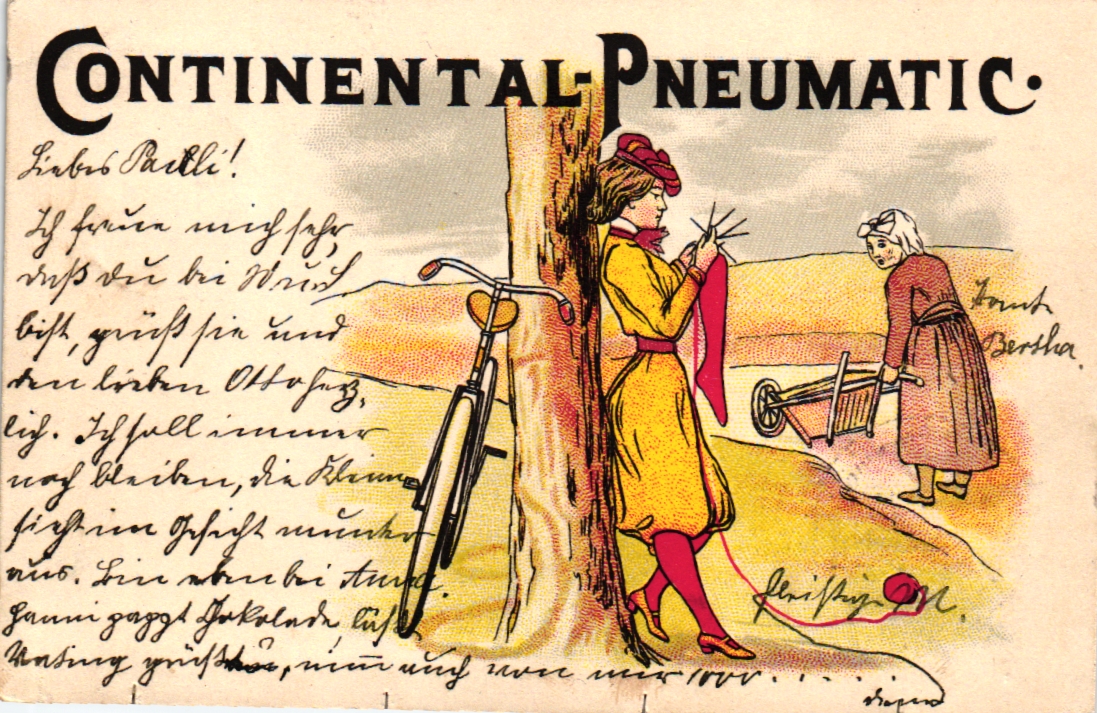 CONTINENTAL-PNEUMATIC.
Liebes Paulli!
Ich freue mich sehr,
daß du bei
bist, grüß sie und
den lieben Otto herz,
lich. Ich soll immer
noch bleiben, die Kleine
sieht im Gesicht munter
aus. Bin eben bei Anna.
Hanni pappt Schokolade, läßt
grüßen, nimm auch von mir 1000.......
Tante
Bertha.
fleißige M.